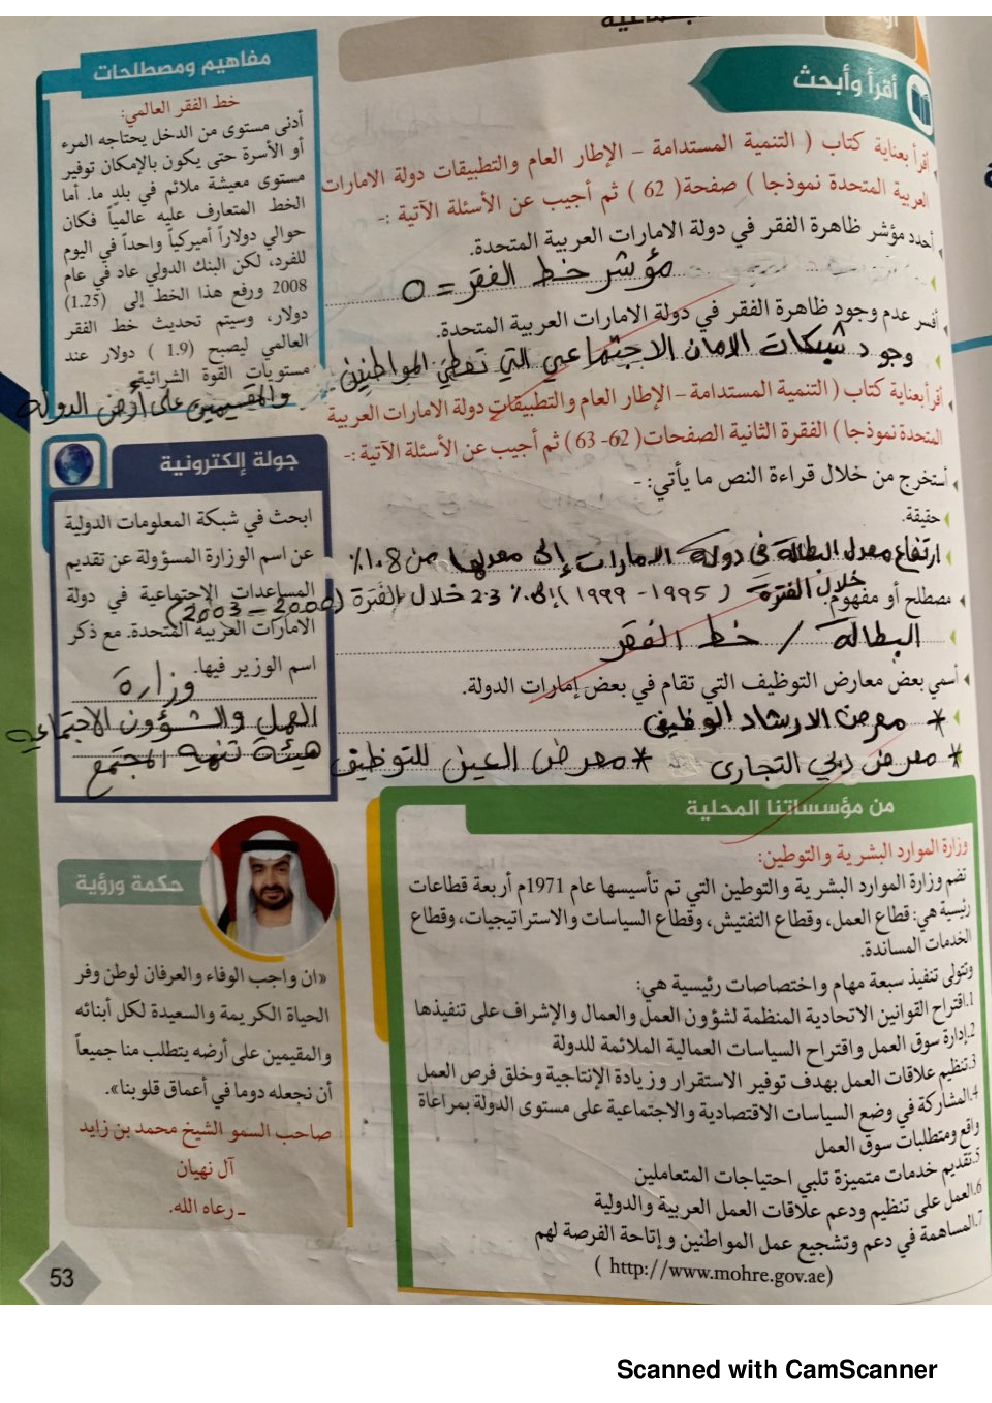 أقرأ وأبحث
أقرأ بعناية كتاب ( التنمية المستدامة – الإطار العام والتطبيقات دولة الامارات
العربية المتحدة نموذجا ) صفحة( 62 ) ثم أجيب عن الأسئلة الآتية :-
أحدد مؤشر ظاهرة الفقر في دولة الامارات العربية المتحدة.
مؤشر خط الفقر = 0
أفسر عدم وجود ظاهرة الفقر في دولة الامارات العربية المتحدة.
وجود شبكات الامان الاجتماعي التي تغطي المواطنين
والمقيمين على أرض الدولة
أقرأ بعناية كتاب ( التنمية المستدامة – الإطار العام والتطبيقات دولة الامارات العربية
المتحدة نموذجا ) الفقرة الثانية الصفحات( 62- 63) ثم أجيب عن الأسئلة الآتية :-
أستخرج من خلال قراءة النص ما يأتي: -
حقيقة.
ارتفاع معدل البطالة في دولة الامارات إلى معدلها من 1.8%
خلال الفترة ( 1995 - 1999 ) إلى 2.3% خلال الفترة (2000 - 2003)
مصطلح أو مفهوم.
البطالة / خط الفقر
أسمي بعض معارض التوظيف التي تقام في بعض إمارات الدولة.
* معرض الارشاد الوظيفي
* معرض دبي التجاري * معرض العين للتوظيف
مفاهيم ومصطلحات
خط الفقر العالمي:
أدنى مستوى من الدخل يحتاجه المرء
أو الأسرة حتى يكون بالإمكان توفير
مستوى معيشة ملائم في بلدٍ ما. أما
الخط المتعارف عليه عالمياً فكان
حوالي دولاراً أميركياً واحداً في اليوم
للفرد، لكن البنك الدولي عاد في عام
2008 ورفع هذا الخط إلى (1.25)
دولار، وسيتم تحديث خط الفقر
العالمي ليصبح (1.9 ) دولار عند
مستويات القوة الشرائية.
جولة إلكترونية
ابحث في شبكة المعلومات الدولية
عن اسم الوزارة المسؤولة عن تقديم
المساعدات الاجتماعية في دولة
الامارات العربية المتحدة. مع ذكر
اسم الوزير فيها.
وزارة
العمل والشؤون الاجتماعية
هيئة تنمية المجتمع
من مؤسساتنا المحلية
وزارة الموارد البشرية والتوطين:
تضم وزارة الموارد البشرية والتوطين التي تم تأسيسها عام 1971م أربعة قطاعات
رئيسية هي: قطاع العمل، وقطاع التفتيش، وقطاع السياسات والاستراتيجيات، وقطاع
الخدمات المساندة.
وتتولى تنفيذ سبعة مهام واختصاصات رئيسية هي:
1.اقتراح القوانين الاتحادية المنظمة لشؤون العمل والعمال والإشراف على تنفيذها
2.إدارة سوق العمل واقتراح السياسات العمالية الملائمة للدولة
3.تنظيم علاقات العمل بهدف توفير الاستقرار وزيادة الإنتاجية وخلق فرص العمل
4.المشاركة في وضع السياسات الاقتصادية والاجتماعية على مستوى الدولة بمراعاة
واقع ومتطلبات سوق العمل
5.تقديم خدمات متميزة تلبي احتياجات المتعاملين
6.العمل على تنظيم ودعم علاقات العمل العربية والدولية
7.المساهمة في دعم وتشجيع عمل المواطنين وإتاحة الفرصة لهم
( http://www.mohre.gov.ae)
حكمة ورؤية
«ان واجب الوفاء والعرفان لوطن وفر
الحياة الكريمة والسعيدة لكل أبنائه
والمقيمين على أرضه يتطلب منا جميعاً
أن نجعله دوما في أعماق قلوبنا».
صاحب السمو الشيخ محمد بن زايد
آل نهيان
ـ رعاه الله.
53
Scanned with CamScanner